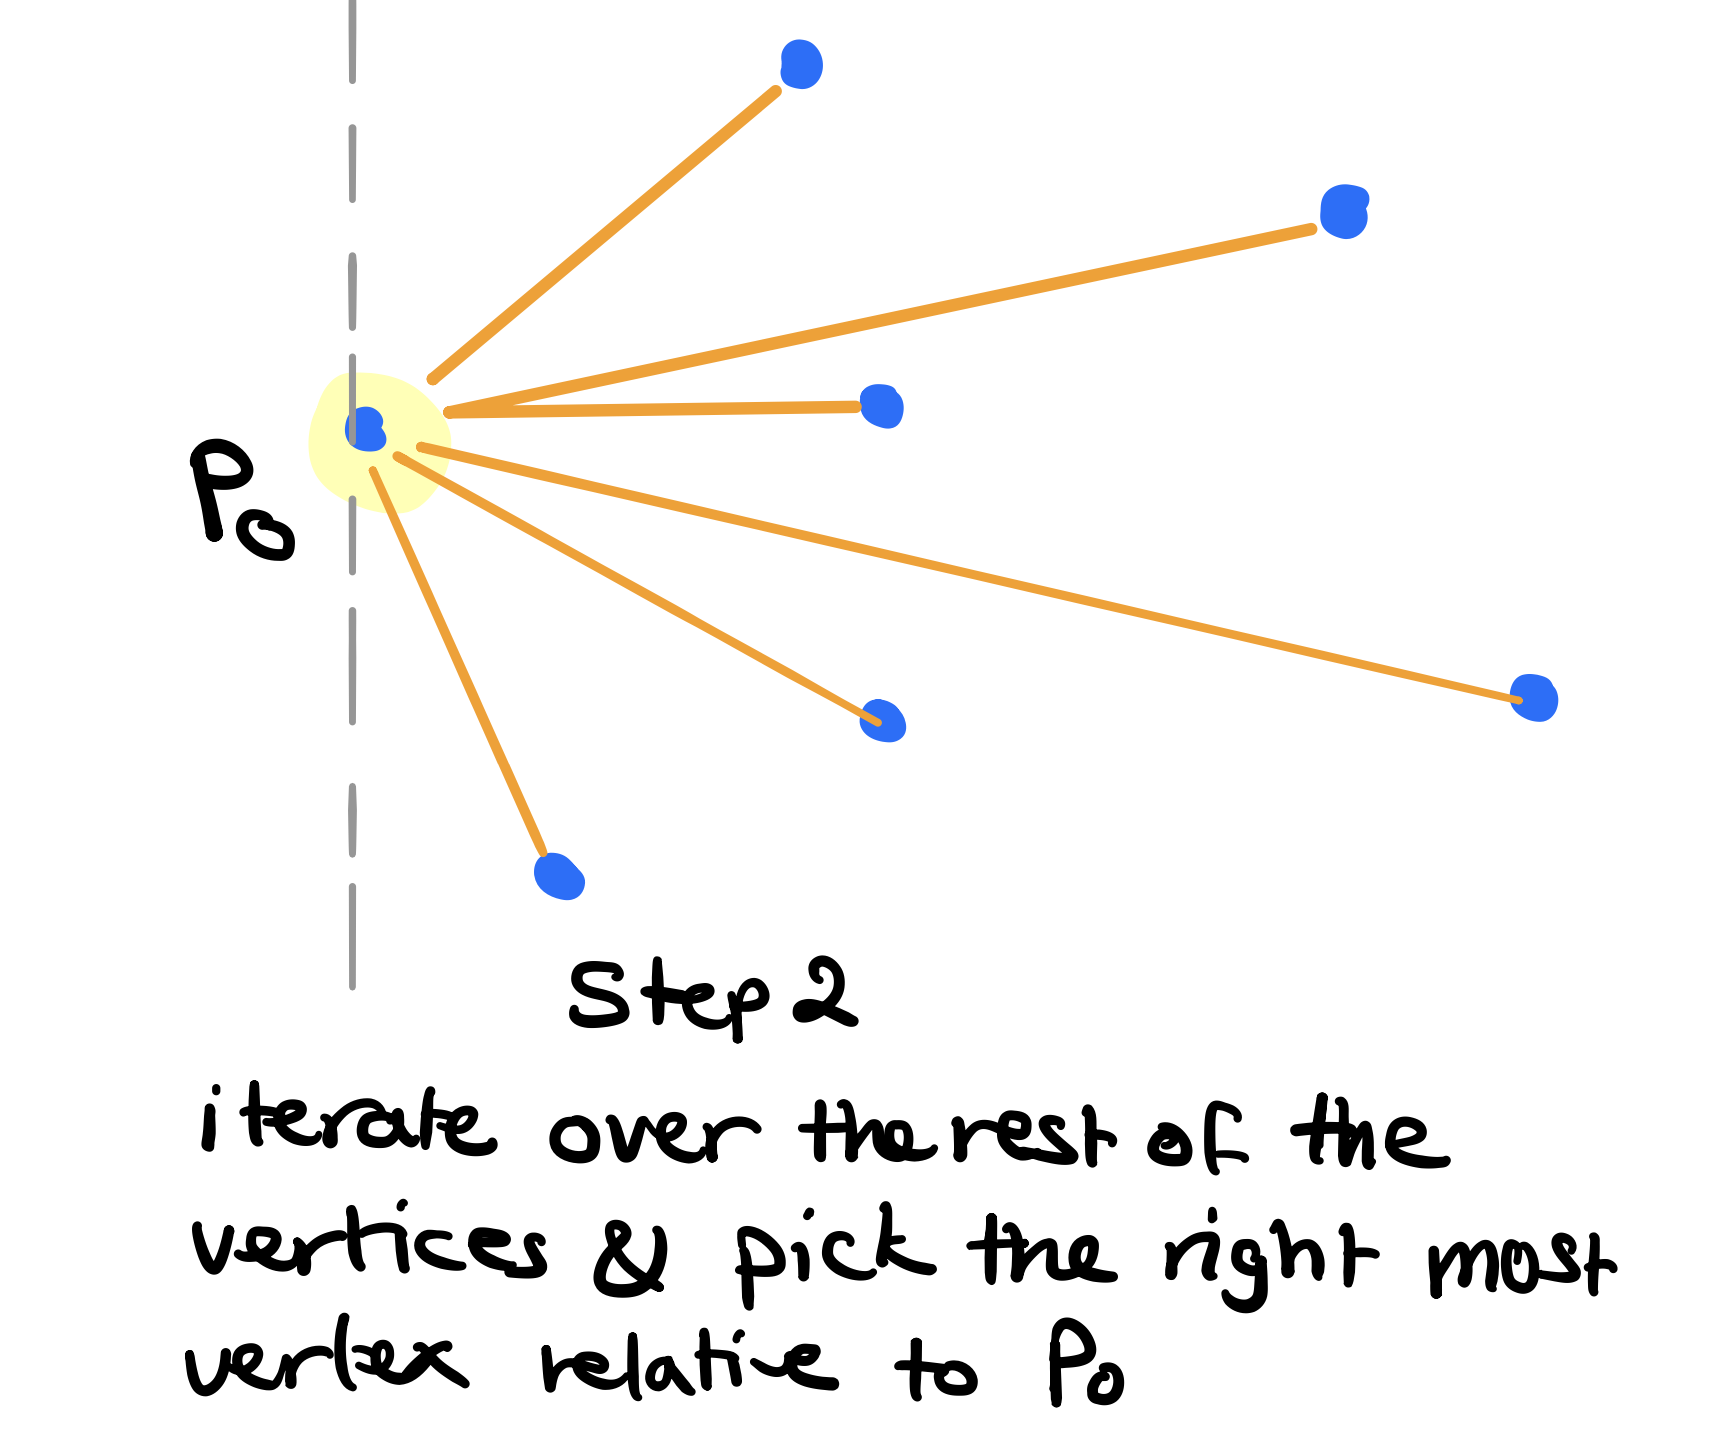 Po
Step 2
iterate over the rest of the
vertices & pick the right most
vertex relative to Po